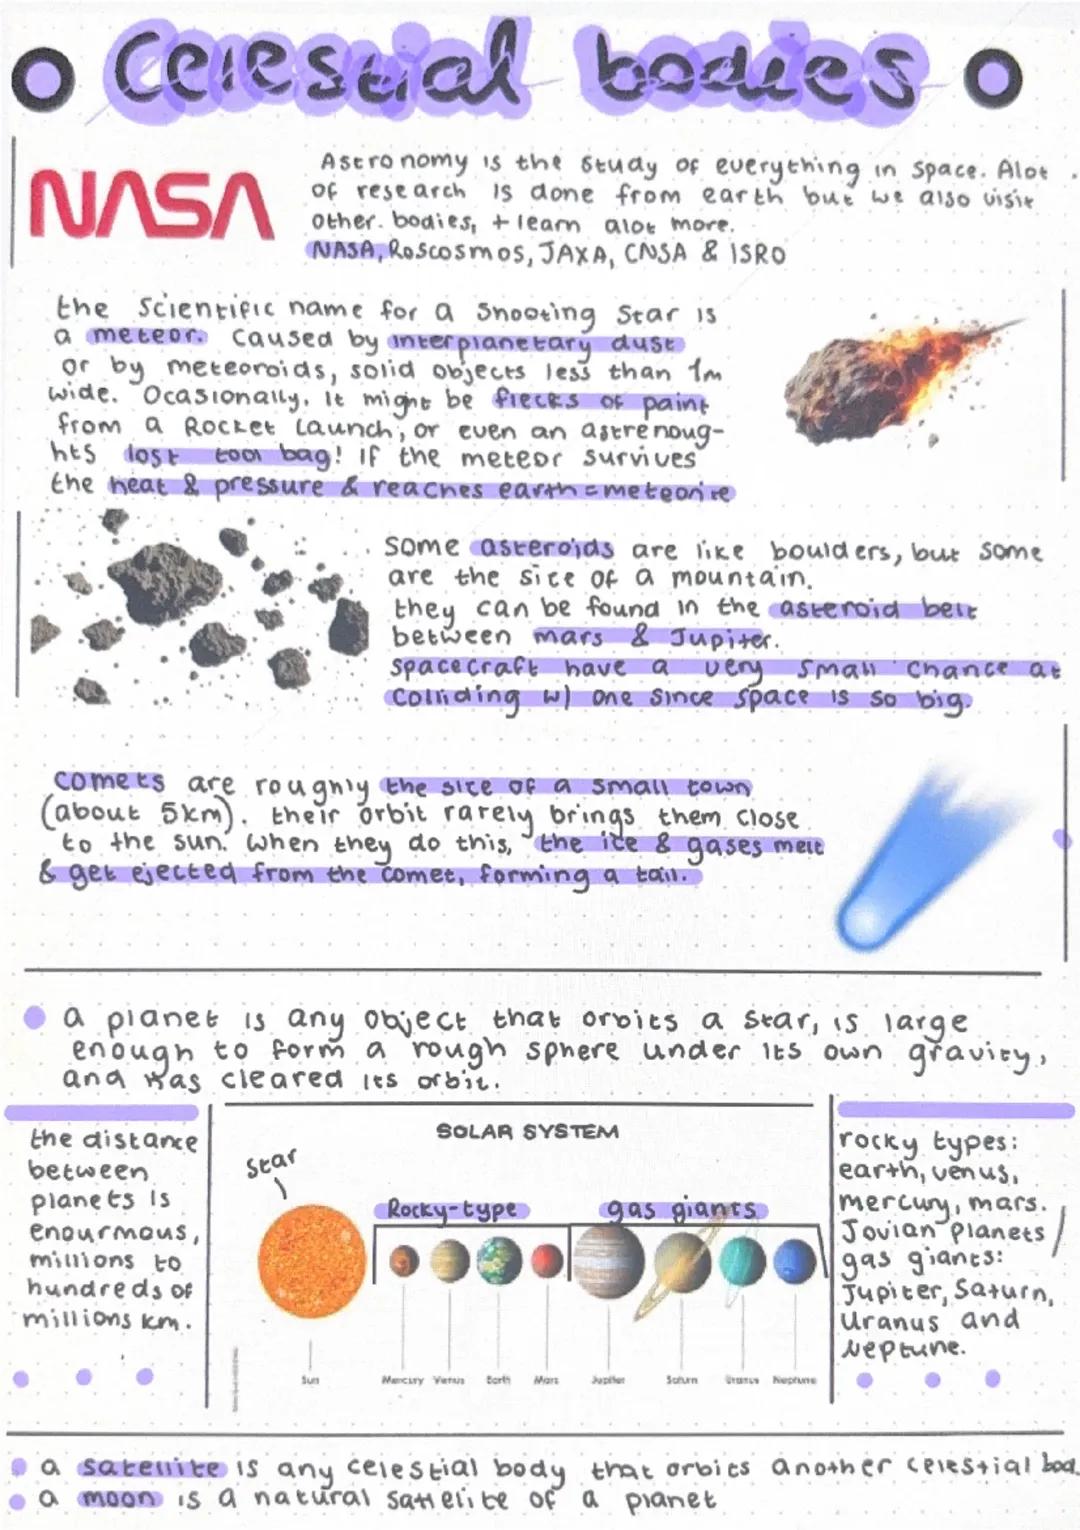 Celestial bodies
NASA
Astronomy is the study of everything in space. Alot
of research is done from earth but we also visit
other bodies, + learn alot more.
NASA, Roscosmos, JAXA, CNSA & ISRO
the scientific name for a shooting star is
a meteor. Caused by interplanetary dust
or by meteoroids, solid objects less than 1m
wide. Ocasionally, it might be flecks of paint
from a Rocket Launch, or even an astrenoug-
hts lost tool bag! if the meteor survives
the heat & pressure & reaches earth = meteorite
Some asteroids are like boulders, but some
are the size of a mountain.
they can be found in the asteroid belt
between mars & Jupiter.
spacecraft have a very small chance at
colliding w/ one since space is so big.
comets are roughly the size of a small town
(about 5km). their orbit rarely brings them close
to the sun. when they do this, the ice & gases melt
& get ejected from the comet, forming a tail.
a planet is any object that orbits a star, is large
enough to form a rough sphere under its own gravity,
and has cleared its orbit.
the distance
between
planets is
enourmous,
millions to
hundreds of
millions km.
SOLAR SYSTEM
Star
Rocky-type gas giants
Sun Mercury Venus Earth Mars Jupiter Saturn Uranus Neptune
rocky types:
earth, venus,
mercury, mars.
Jovian Planets /
gas giants:
Jupiter, Saturn,
Uranus and
Neptune.
a satellite is any celestial body that orbits another celestial bod
a moon is a natural sattelite of a planet